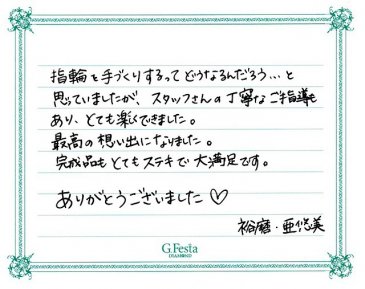 指輪を手づくりするってどうなるんだろう…と
思っていましたが、スタッフさんの丁寧なご指導も
あり、とても楽しくできました。
最高の想い出になりました。
完成品もとてもステキで大満足です。
ありがとうございました♡
裕磨・亜悠美
G.Festa
DIAMOND